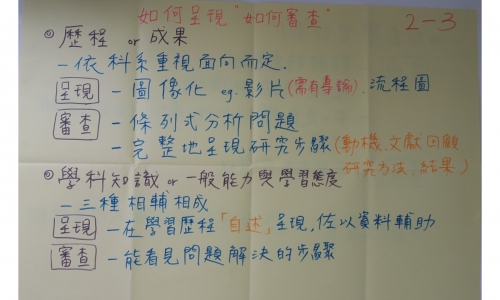 如何呈現"如何審查"
2-3
◎歷程 or 成果
－依科系重視面向而定.
呈現 －圖像化 eg.影片(需有導論).流程圖
審查 －條列式分析問題
－完整地呈現研究步驟(動機、文獻回顧
研究方法、結果)
◎學科知識 or 一般能力與學習態度
－三種相輔相成
呈現 －在學習歷程「自述」呈現,佐以資料輔助
審查 －能看見問題解決的步驟